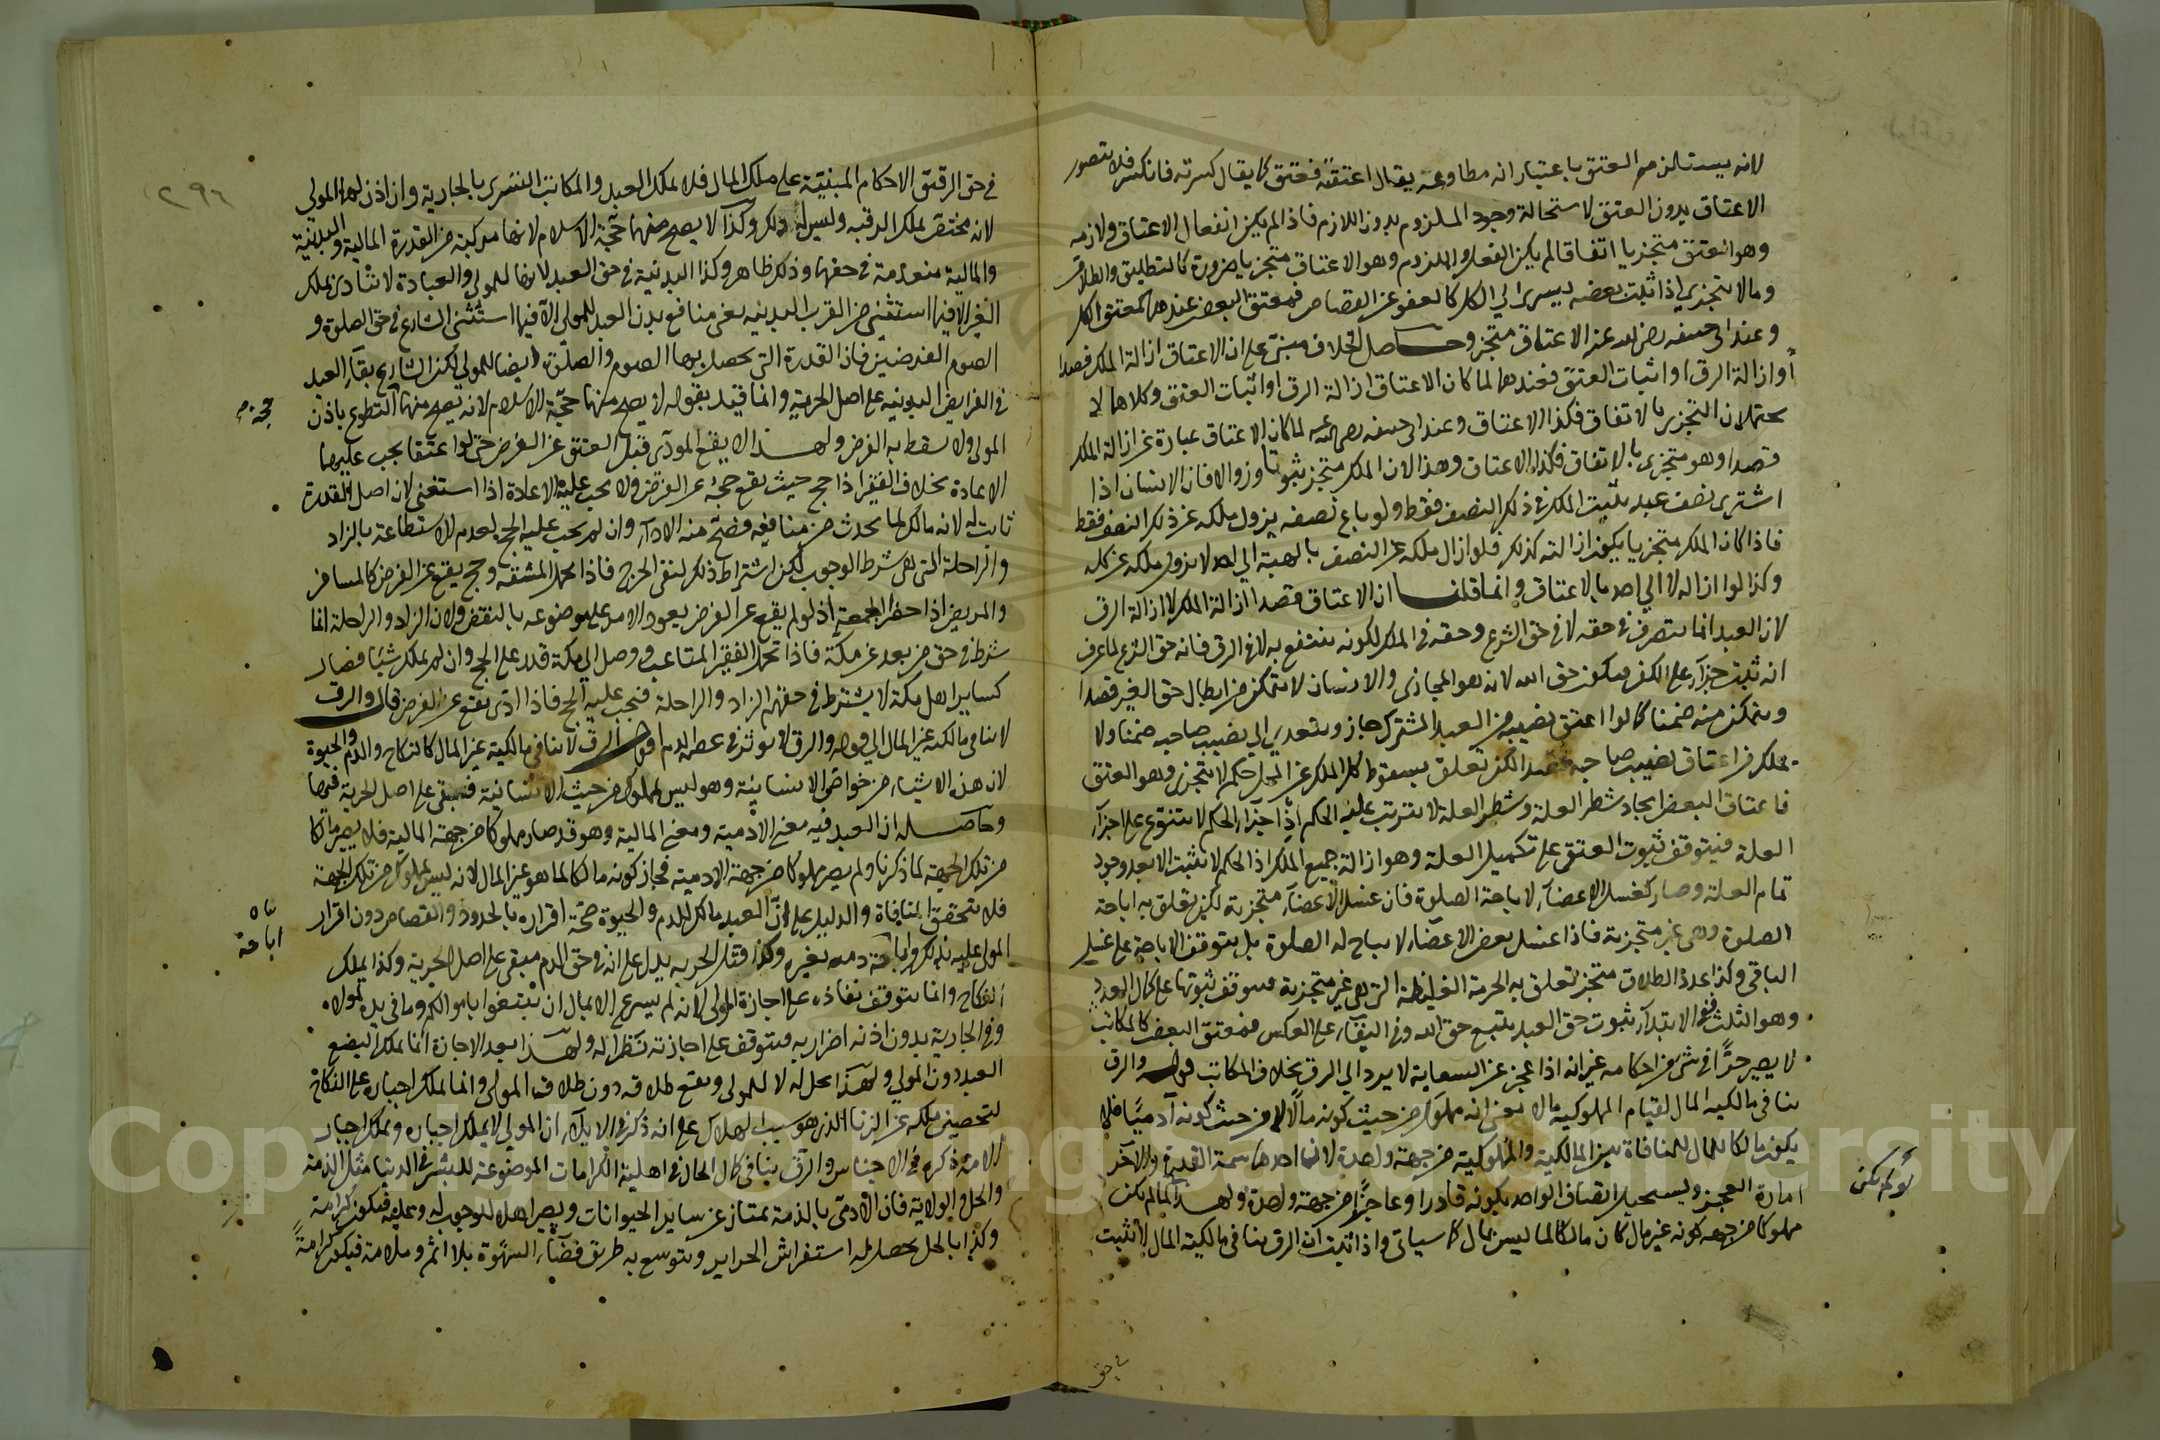 لانه يستلزم العتق باعتبار انه مطاوعه يقال اعتقته فعتق كما يقال كسرته فانكسر فلا يتصور
الاعتاق بدون العتق لاستحالة وجود الملزوم بدون اللازم فاذا لم يكن انفعال الاعتاق ولازمه
وهو العتق متجزيا اتفاقا لم يكن الفعل والملزوم وهو الاعتاق متجزيا ضرورة كالتطليق والطلاق
وما لا يتجزى اذا ثبت بعضه يسرى الى الكل كالعفو عن القصاص فمعتق البعض عندهما كمعتق الكل
وعند ابى حنيفه رضى الله عنه الاعتاق متجز وحاصل الخلاف مبنى على ان الاعتاق ازالة الملك قصدا
أو ازالة الرق او اثبات العتق فعندهما لما كان الاعتاق ازالة الرق او اثبات العتق وكلاهما لا
يحتملان التجزى بالاتفاق فكذا الاعتاق وعند ابى حنيفه رضى الله عنه لما كان الاعتاق عبارة عن ازالة الملك
قصدا وهو متجزى بالاتفاق فكذا الاعتاق وهذا لان الملك متجز ثبوتا وزوالا فان الانسان اذا
اشترى نصف عبد يثبت الملك فى ذلك النصف فقط ولو باع نصفه يزول ملكه عن ذلك النصف فقط
فاذا كان الملك متجزيا يكون ازالته كذلك فلو ازال ملكه عن النصف بالهبة الى احد لا يزول ملكه عن كله
وكذا لو ازاله لا الى احد بالاعتاق وانما قلنا ان الاعتاق قصدا ازالة الملك لا ازالة الرق
لان العبد انما يتصرف فى حقه لا فى حق الشرع وحقه فى الملك لكونه ينتفع به لا فى الرق فانه حق الشرع لما عرف
انه ثبت جزآء على الكفر فيكون حق الله لانه هو المجازى والانسان لا يتمكن من ابطال حق الغير قصدا
ويتمكن منه ضمنا كما لو اعتق نصيبه من العبد المشترك جاز ويتعدى الى نصيب صاحبه ضمنا ولا
يملك من اعتاق نصيب صاحبه قصدا لكن تعلق بسقوط كل الملك عن المحل حكم لا يتجزى وهو العتق
فاعتاق البعض ايجاد شطر العلة وشطر العلة لا يترتب عليه الحكم اذ اجزاء الحكم لا يتنوع على اجزاء
العلة فيتوقف ثبوت العتق على تكميل العلة وهو ازالة جميع الملك اذ الحكم لا يثبت الا بعد وجود
تمام العلة وصار كغسل الاعضاء لاباحة الصلوة فان غسل الاعضاء متجزية لكن يتعلق به اباحة
الصلوة وهى غير متجزية فاذا غسل بعض الاعضاء لا يباح له الصلوة بل يتوقف الاباحة على غسل
الباقى وكذا عدد الطلاق متجز تعلق به الحرمة الغليظة التى هى غير متجزية فيتوقف ثبوتها على كمال العدد
وهو الثلث ففى الابتدآء ثبوت حق العبد يتبع حق الله وفى البقآء على العكس فمعتق البعض كالمكاتب
لا يصير حرًّا فى شئ من احكامه غير انه اذا عجز عن السعاية لا يرد الى الرق بخلاف المكاتب قوله والرق
ينافى مالكيه المال لقيام المملوكيه مالا يعنى انه مملوك من حيث كونه مالًا لا من حيث كونه آدميًا فلا
يكون مالكا للمال للمنافاة بين المالكية والمملوكية من جهة واحدة لان احدهما سمة القدرة والآخر
امارة العجز ويستحيل اتصاف الواحد بكونه قادرا وعاجزًا من جهة واحدة ولهذا لما لم يكن
مملوكا من جهه كونه غير مال كان مالكا لما ليس بمال كما سيأتى واذا ثبت ان الرق ينافى مالكية المال لا تثبت
قوله لم يكن
فى حق
٢٩٦
فى حق الرقيق الاحكام المبنيّة على ملك المال فلا يملك العبد والمكاتب التسرى بالجارية وان اذن لهما المولى
لانه مختص بملك الرقبه وليس له ذلك وكذا لا يصح منهما حجّة الاسلام لانها مركبة من القدرة المالية والبدنية
والمالية منعدمة فى حقهما وذلك ظاهر وكذا البدنية فى حق العبد لانها للمولى والعبادة لا تتأدى بملك
الغير الا فيما استثنى من القرب البدنيه يعنى منافع بدن العبد للمولى الا فيما استثنى الشارع فى حق الصلوة و
الصوم الفرضين فان القدرة التى يحصل بهما الصوم والصلوة ايضا للمولى لكن الشارع بقاء العبد
فى الفرايض البدنيه على اصل الحرية وانما قيد بقوله لا يصح منهما حجّة الاسلام لانه يصح منهما التطوع باذن
المولى ولا يسقط به الفرض ولهذا لا يقع المودّى قبل العتق عن الفرض حتى لو اعتقا يجب عليهما
الاعادة بخلاف الفقير اذا حج حيث يقع حجه عن الفرض ولا يجب عليه الاعادة اذا استغنى لان اصل القدرة
ثابت له لانه مالك لما يحدث من منافعه فصح منه الادآء وان لم يجب عليه الحج لعدم الاستطاعة بالزاد
والراحلة التى هى شرط الوجوب لكن اشتراط ذلك لنفى الحرج فاذا تحمل المشقة وحج يقع عن الفرض كالمسافر
والمريض اذا حضر الجمعة اذ لو لم يقع عن الفرض يعود الامر على موضوعه بالنقض ولان الزاد والراحلة انما
شرط فى حق من بعد عن مكة فاذا تحمل الفقير المتاعب ووصل الى مكة قدر على الحج وان لم يملك شيئا فصار
كساير اهل مكة لا يشترط فى حقهم الزاد والراحلة فيجب عليه الحج فاذا ادى يقع عن الفرض قال والرق
لا ينافى مالكيه غير المال الى قوله والرق لا يوثر فى عصمة الدم اقول الرق لا ينافى مالكية غير المال كالنكاح والدم والحيوة
لان هذه الاشياء من خواص الانسانيّة وهو ليس بمملوك من حيث الانسانية فيبقى على اصل الحرية فيها
وحاصله ان العبد فيه معنى الادمية ومعنى المالية وهو قد صار مملوكا من جهة المالية فلا يصير مالكا
من تلك الجهة لما ذكرنا ولم يصر مملوكا من جهة الادمية فجاز كونه مالكا لما هو غير المال لانه ليس بمملوك من تلك الجهة
فلا يتحقق المنافاة والدليل على انّ العبد مالك للدم والحيوة صحّة اقراره بالحدود والقصاص دون اقرار
المولى عليه بذلك واباحة دمه بغيره وكذا قتل الحر به يدل على انه فى حق الدم مبقى على اصل الحرية وكذا يملك
النكاح وانما يتوقف نفاذه على اجازة المولى لانه لم يسرع الا بمال ان تبتغوا باموالكم وما فى يده لمولاه
وفى الجارية بدون اذنه اضرار به فيتوقف على اجازته نظرا له ولهذا بعد الاجازة انما يملك البضع
العبد دون المولى ولهذا يحل له لا للمولى ويقع طلاقه دون طلاق المولى وانما يملك اجباره على النكاح
لتحصين ملكه عن الزنا الذى هو سبب الهلاك على انه ذكر فى الايلاء ان المولى لا يملك اجباره ويملك اجبار
الامة ذكره فى الاجناس والرق ينافى كمال الحال فى اهلية الكرامات الموضوعة للبشر فى الدنيا مثل الذمة
والحل والولاية فان الآدمى بالذمة يمتاز عن ساير الحيوانات ويصير اهلا للوجوب له وعليه فيكون كرامة
وكذا بالحل يحصل له استفراش الحراير ويتوسع به طريق قضآء الشهوة بلا اثم وملامة فيكون كرامةً
اباحة